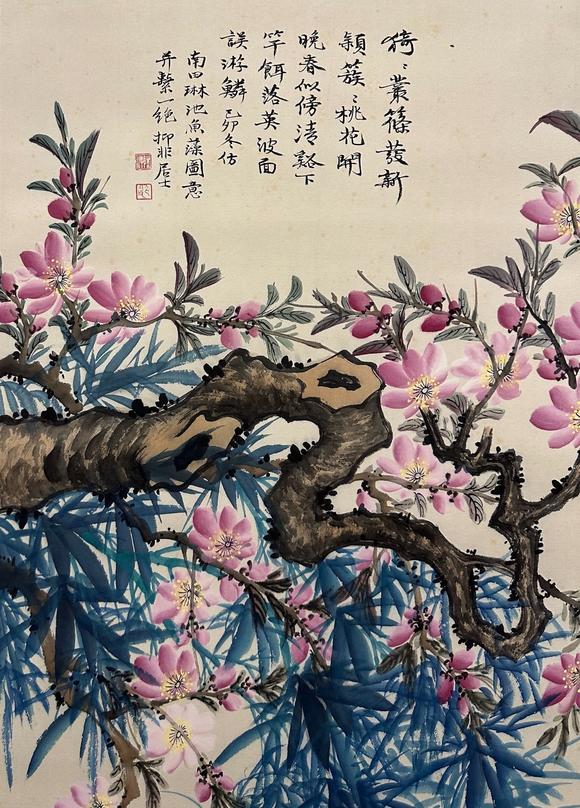 猗〻叢篠發新
穎簇〻桃花開
晚春似傍清谿下
竿餌落英波面
誤游鱗 己卯冬仿
南田琳池魚藻圖意
并繫一絕 抑非居士